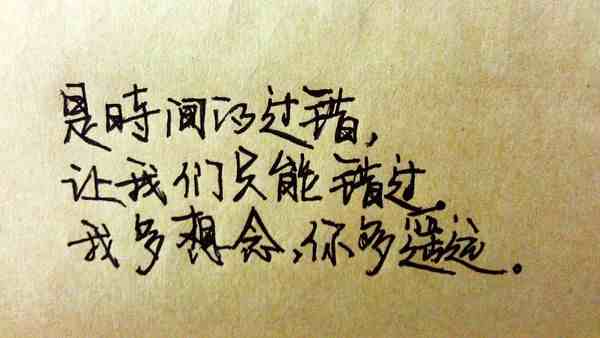 是时间的过错,
让我们只能错过.
我多想念,你多遥远.